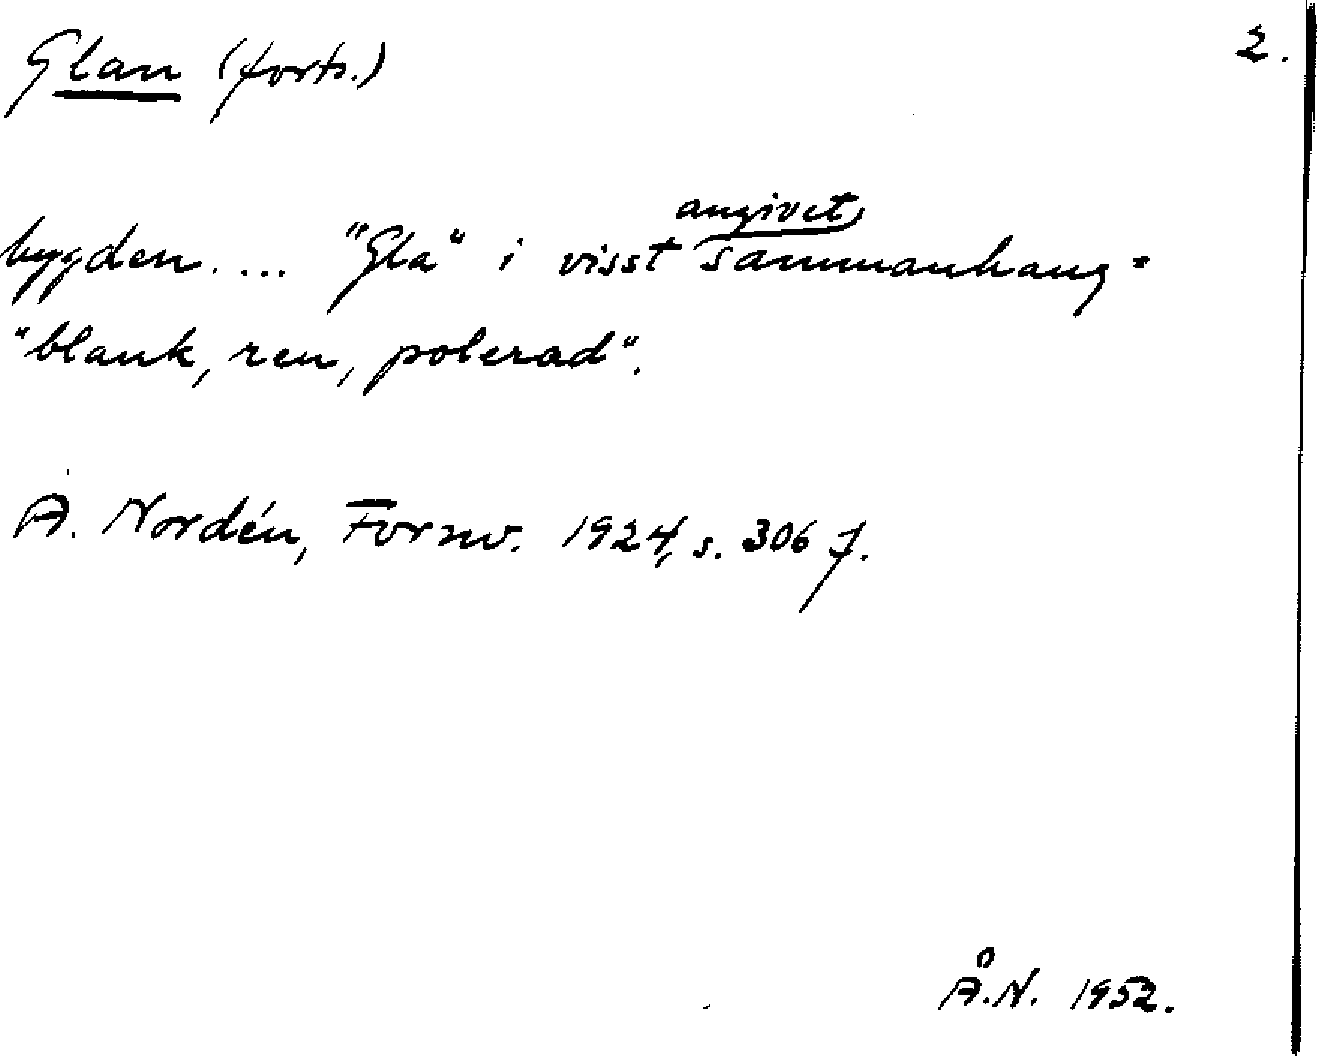 Glan (forts.) 2.
bygden. ... "Gla" i visst angivet sammanhang =
"blank, ren, polerad".
A. Nordén, Fornv. 1924, s. 306 f.
Å.N. 1952.